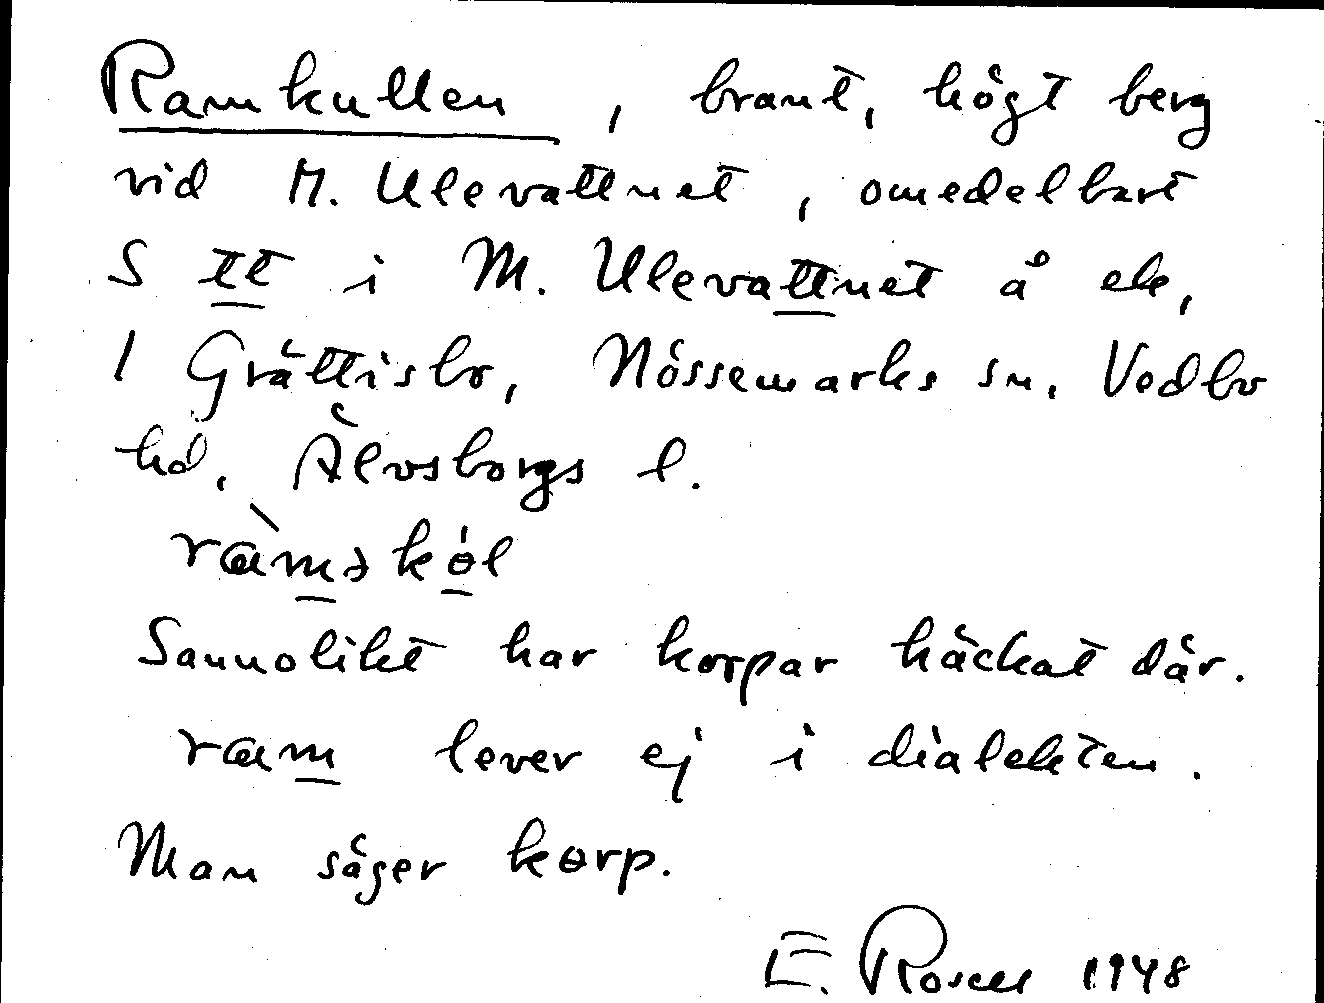 Ramkullen, brant, högt berg
vid M. Ulevattnet, omedelbart
S tt i M. Ulevattnet å ek,
1 Grättisbo, Nössemarks sn. Vedbo
hd. Älvsborgs l.
Sannolikt har korpar häckat där.
ram lever ej i dialekten.
Man säger kɵrp.
E. Rosell 1948